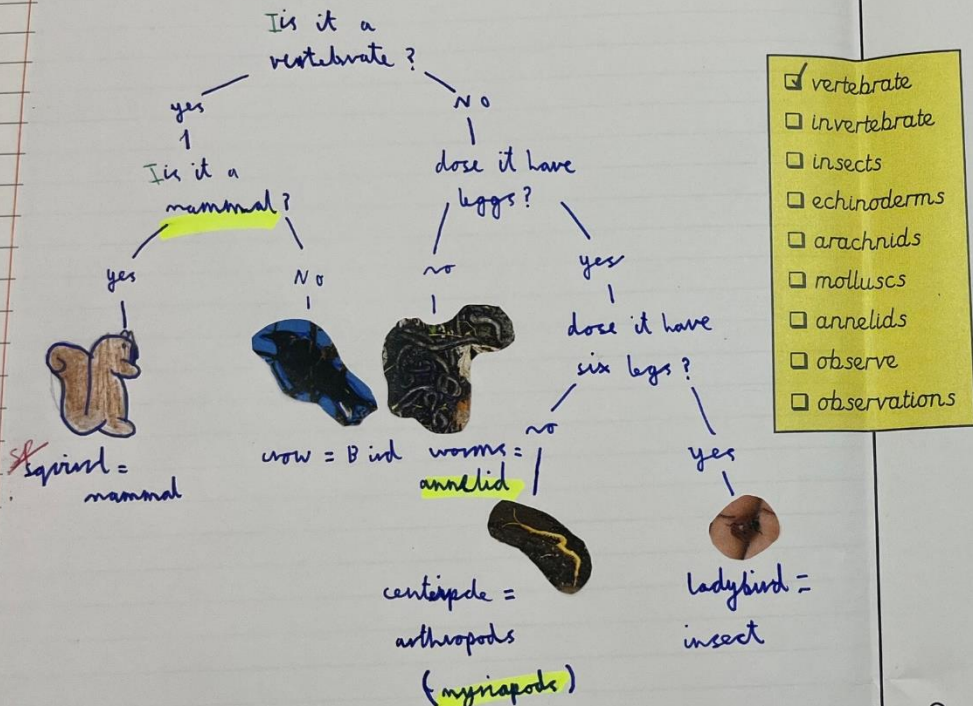 Iis it a
vertebrate?
yes
No
Iis it a
mammal?
dose it have
leggs?
yes
No
no
yes
dose it have
six legs?
no
yes
sp
squirrl =
mammal
crow = Bird
worms =
annelid
centipde =
arthropods
(myriapods)
ladybird =
insect
vertebrate
invertebrate
insects
echinoderms
arachnids
molluscs
annelids
observe
observations